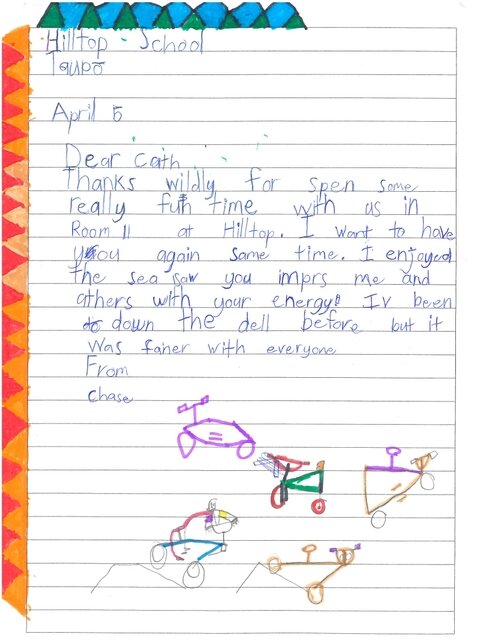 Hilltop School
Taupō
April 5
Dear Cath
Thanks wildly for spen some
really fun time with us in
Room 11 at Hilltop. I want to have
you again same time. I enjoyed
the sea saw you imprs me and
athers with your energy! Iv been
down the dell before but it
was faner with everyone
From
chase